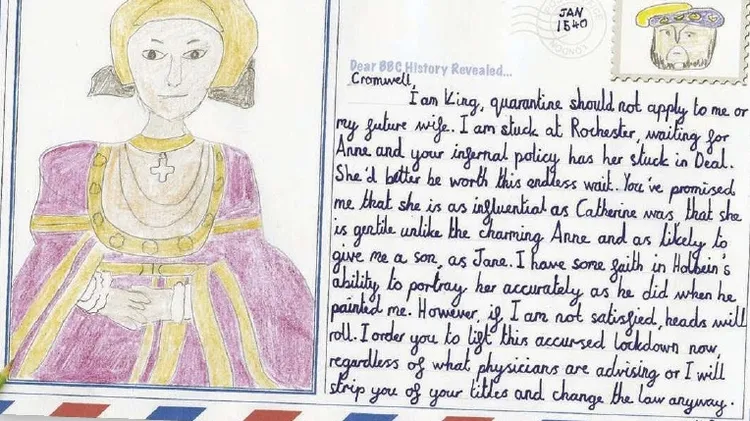 JAN
1540
LONDON
Dear BBC History Revealed...
Cromwell,
I am King, quarantine should not apply to me or
my future wife. I am stuck at Rochester, waiting for
Anne and your infernal policy has her stuck in Deal.
She'd better be worth this endless wait. You've promised
me that she is as influential as Catherine was, that she
is gentile unlike the charming Anne and as likely to
give me a son, as Jane. I have some faith in Holbein's
ability to portray her accurately as he did when he
painted me. However, if I am not satisfied, heads will
roll. I order you to lift this accursed lockdown now,
regardless of what physicians are advising or I will
strip you of your titles and change the law anyway.